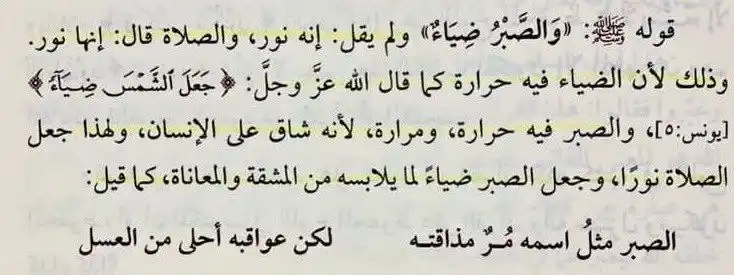 قوله ﷺ: «وَالصَّبْرُ ضِيَاءٌ» ولم يقل: إنه نور، والصلاة قال: إنها نور.
وذلك لأن الضياء فيه حرارة كما قال الله عزَّ وجلَّ: ﴿جَعَلَ ٱلشَّمْسَ ضِيَآءً﴾
[يونس:٥]، والصبر فيه حرارة، ومرارة، لأنه شاق على الإنسان، ولهذا جعل
الصلاة نورًا، وجعل الصبر ضياءً لما يلابسه من المشقة والمعاناة، كما قيل:
الصبر مثلُ اسمه مُـرٌ مذاقتـه لكن عواقبه أحلى من العسل